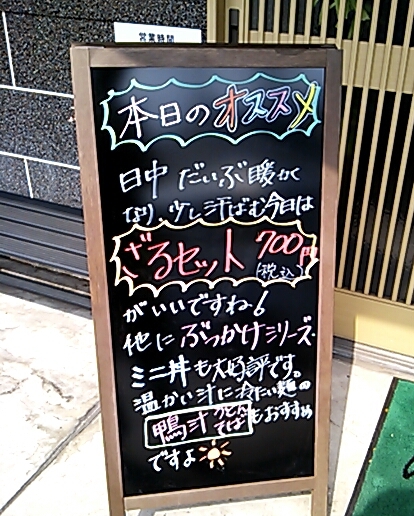 営業時間
本日のオススメ
日中 だいぶ暖かく
なり、少し汗ばむ今日は
ざるセット 700円
(税込)
がいいですね！
他に ぶっかけシリーズ・
ミニ丼も大好評です。
温かい汁に冷たい麺の
鴨汁 うどん そば もおすすめ
ですよ